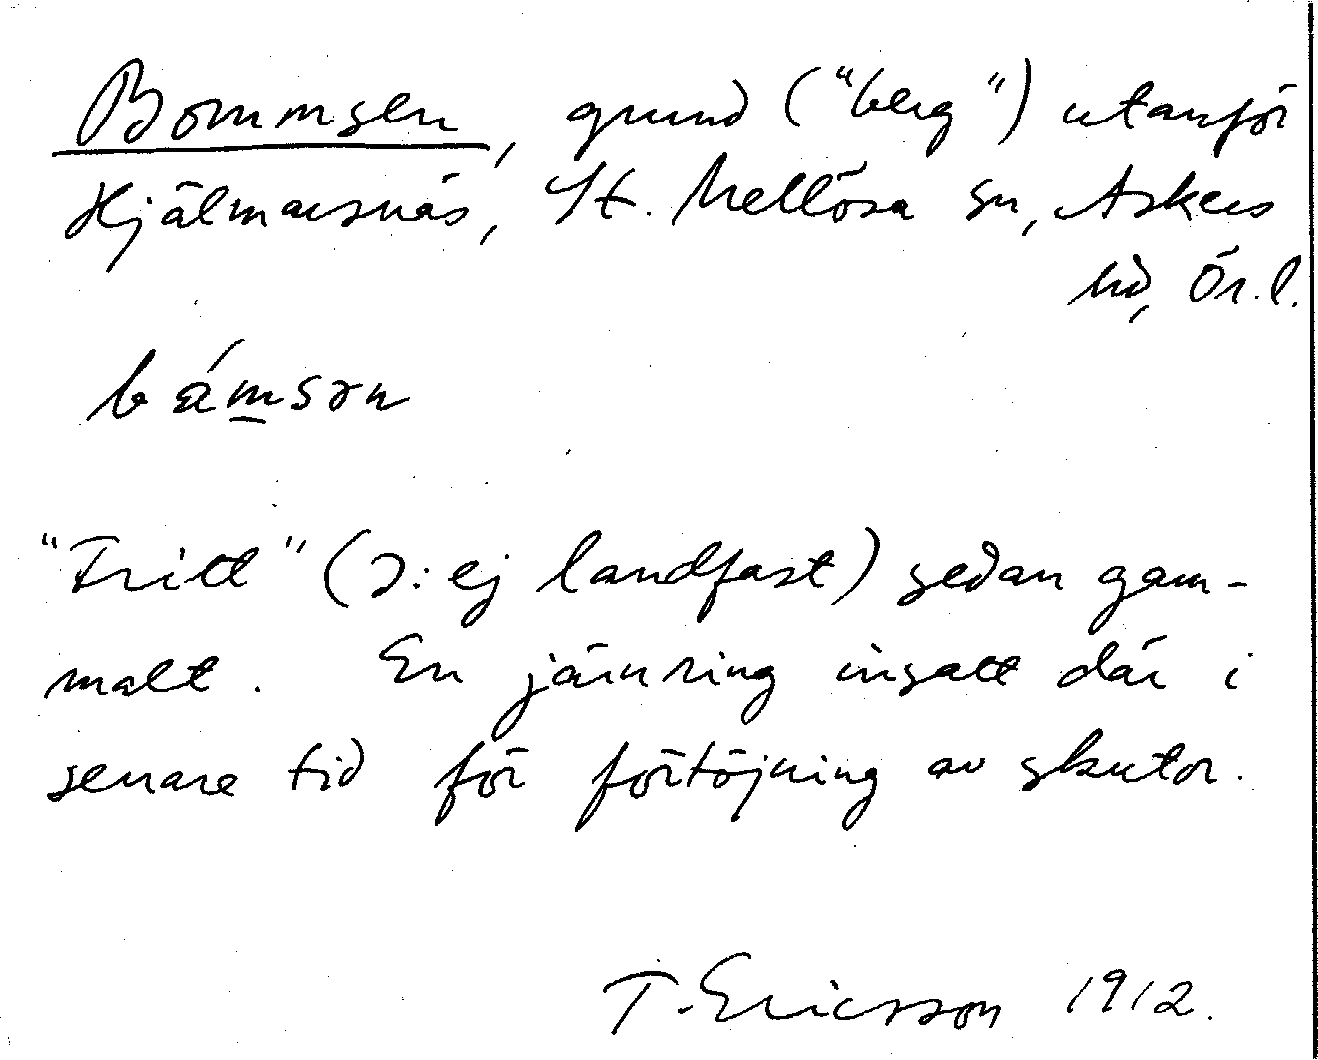 Bommsen, grund ("berg") utanför
Hjälmarsnäs, St. Mellösa sn, Askers
hd, Ör. l.
bámsən
"Fritt" (ɔ: ej landfast) sedan gam-
malt. En järnring insatt där i
senare tid för förtöjning av skutor.
T. Ericsson 1912.